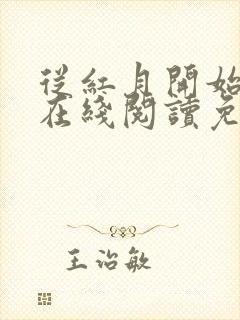 從紅月開始
在綫閱讀免
王治敏